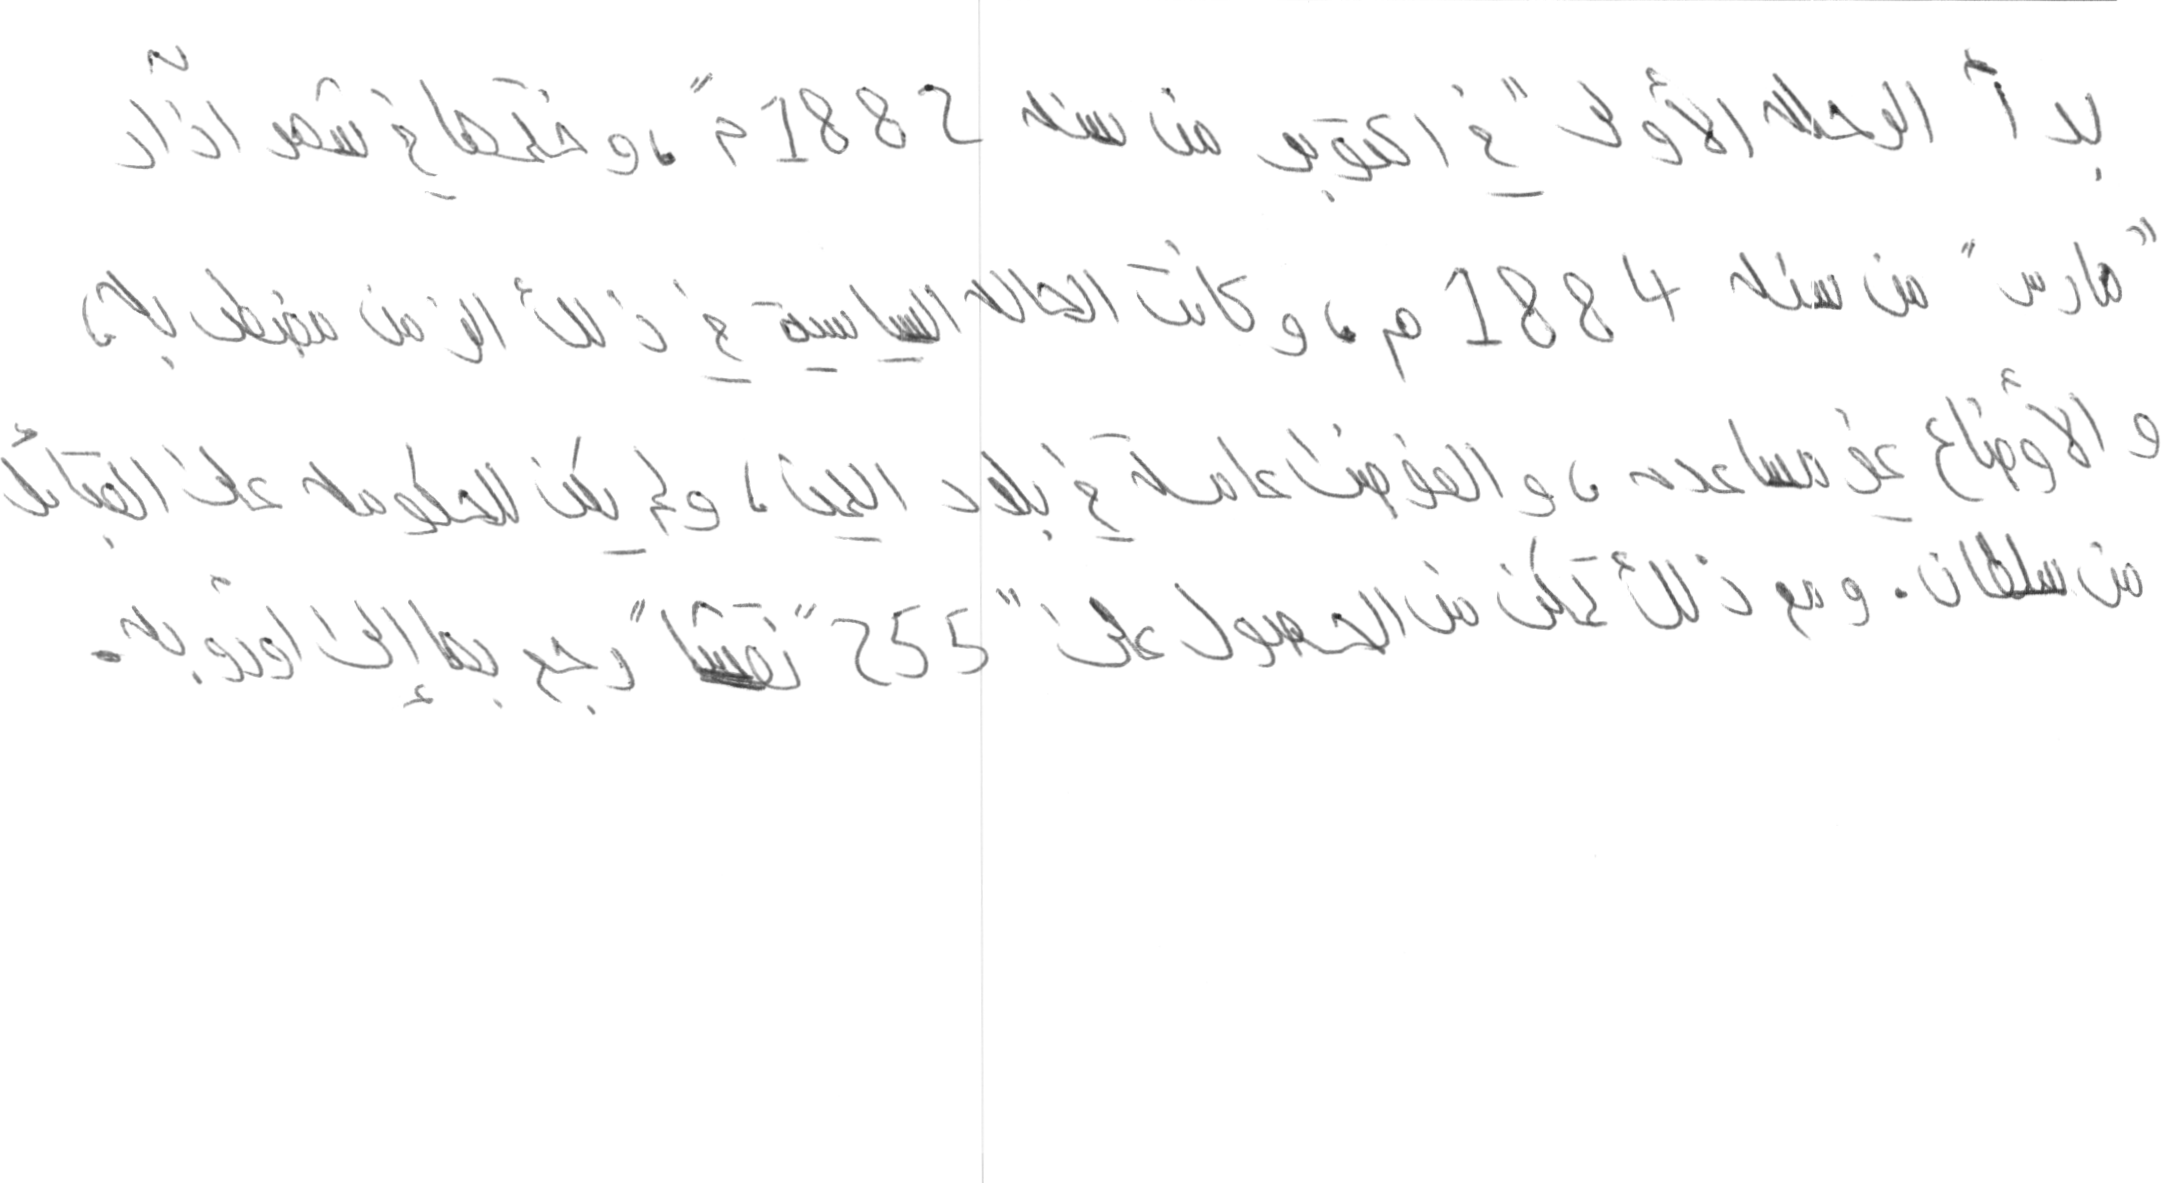 بدأ الرحلة الأولى "في اكتوبر من سنة 1882م"، وختمها في شهر اذآر
"مارس" من سنة 1884 م، وكانت الحالة السياسية في ذلك الزمن مضطربة،
والأوضاع غير مساعدة، والفوضى عامة في بلاد اليمن، ولم يكن للحكومة على القبائل
من سلطان. ومع ذلك تمكن من الحصول على "255" نقشا" رجع بها إلى اوروبة.